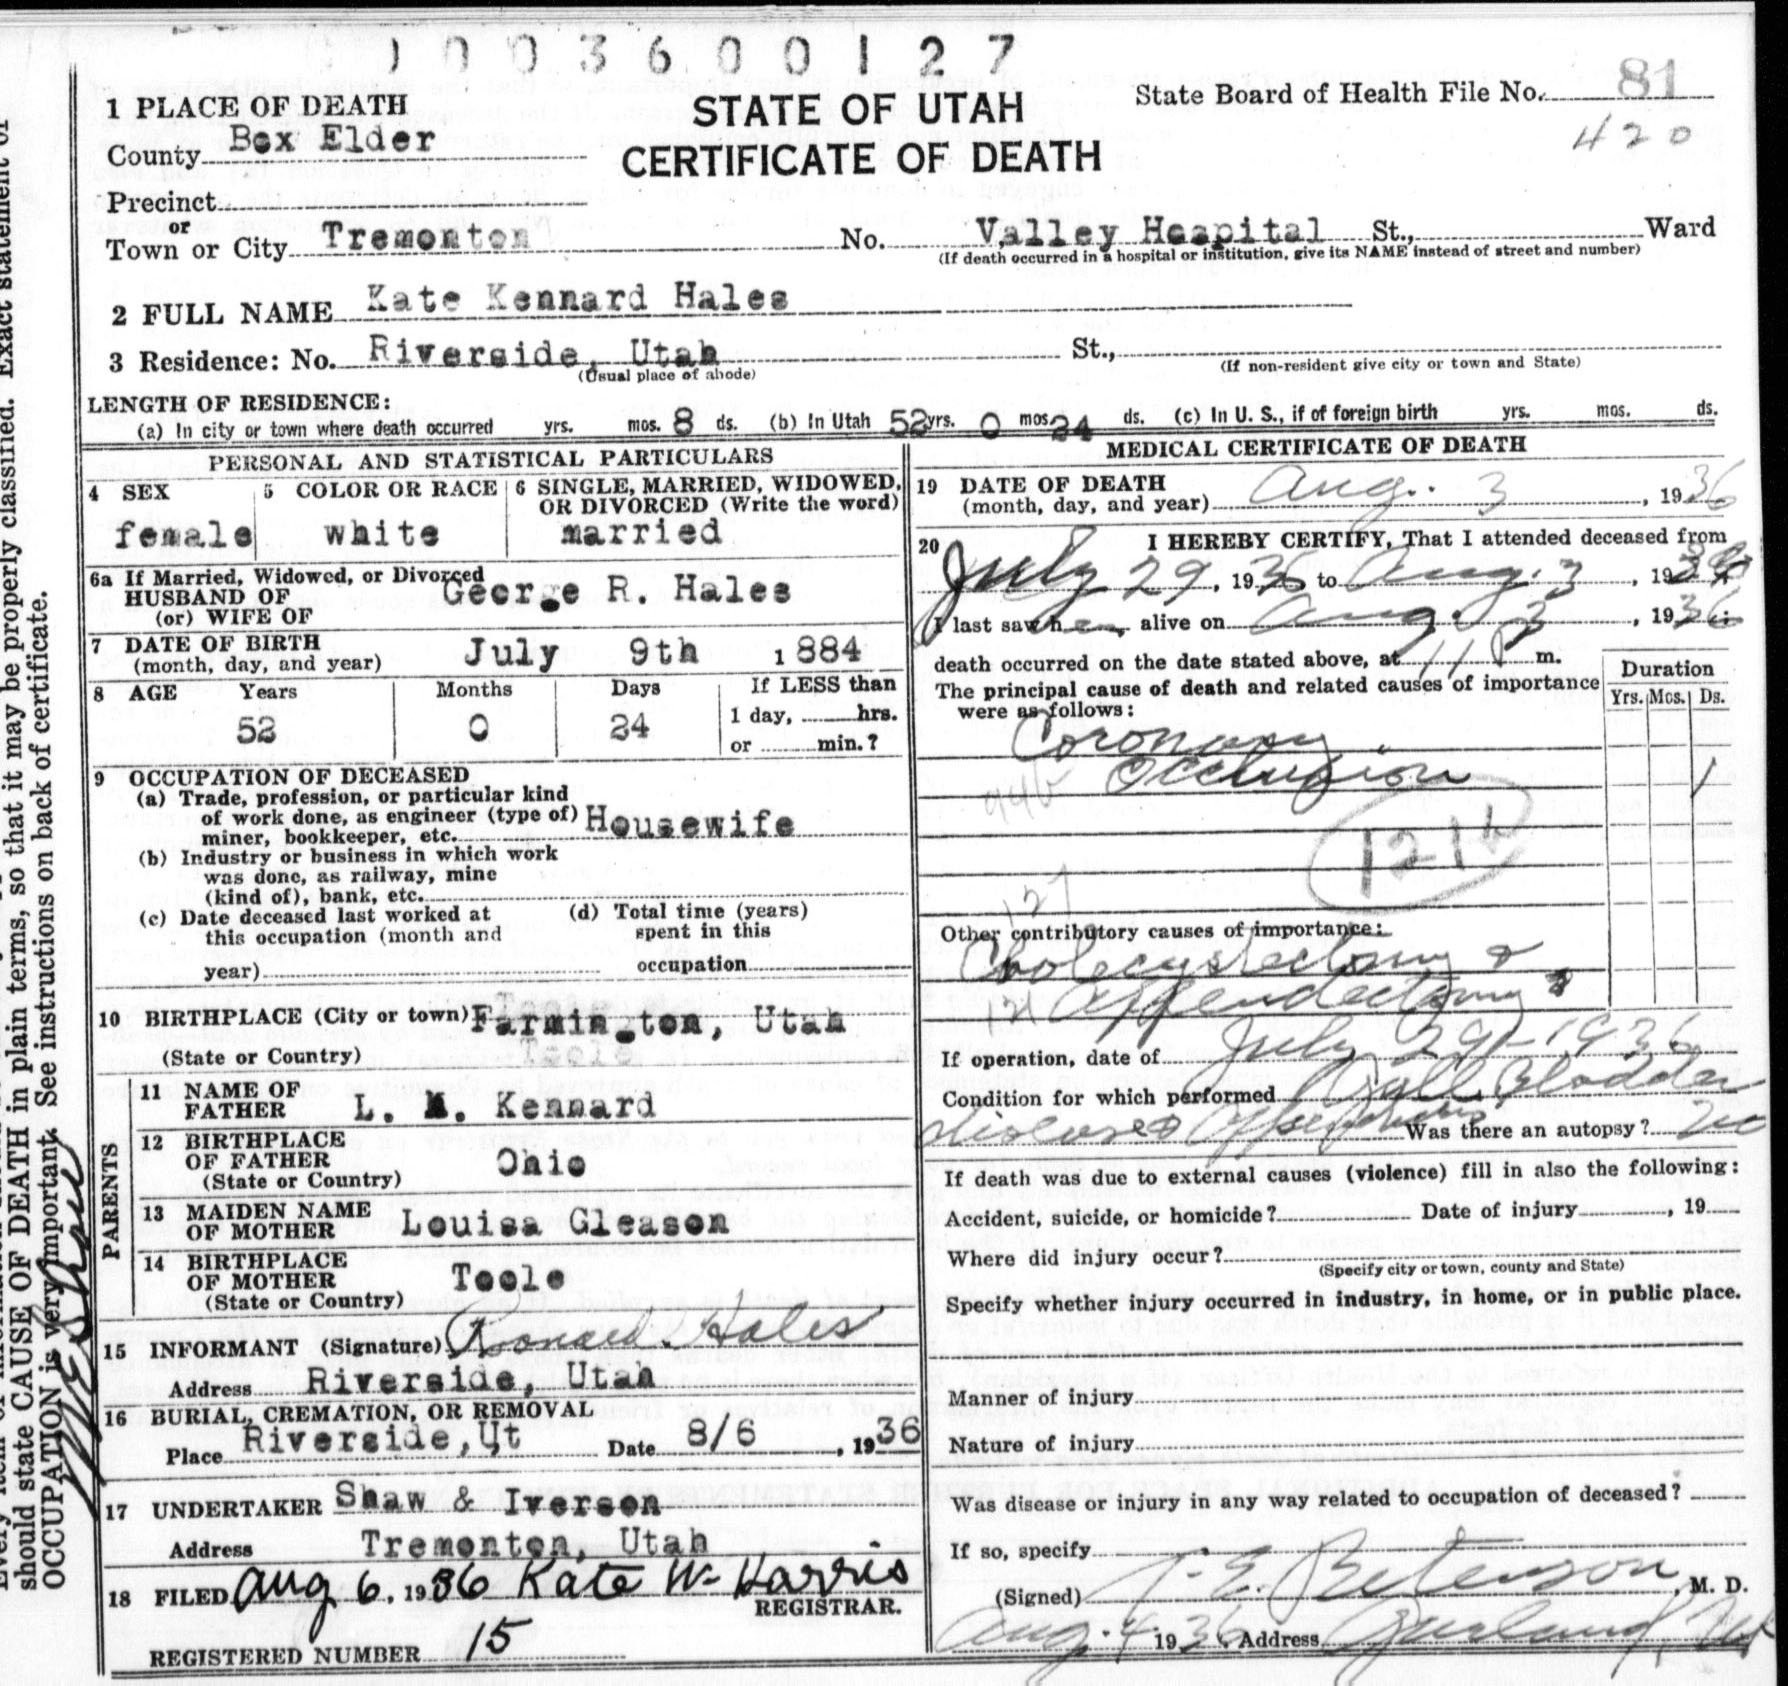 1003600127
1 PLACE OF DEATH
STATE OF UTAH
State Board of Health File No. 81
420
County Box Elder
CERTIFICATE OF DEATH
Precinct
or
Town or City Tremonton No. Valley Hospital St., Ward
(If death occurred in a hospital or institution, give its NAME instead of street and number)
2 FULL NAME Kate Kennard Hales
3 Residence: No. Riverside, Utah St.,
(Usual place of abode) (If non-resident give city or town and State)
LENGTH OF RESIDENCE:
(a) In city or town where death occurred yrs. mos. 8 ds. (b) In Utah 52 yrs. 0 mos 24 ds. (c) In U. S., if of foreign birth yrs. mos. ds.
PERSONAL AND STATISTICAL PARTICULARS
4 SEX 5 COLOR OR RACE 6 SINGLE, MARRIED, WIDOWED,
OR DIVORCED (Write the word)
female white married
6a If Married, Widowed, or Divorced
HUSBAND OF George R. Hales
(or) WIFE OF
7 DATE OF BIRTH
(month, day, and year) July 9th 1884
8 AGE Years Months Days If LESS than
52 0 24 1 day, hrs.
or min.?
9 OCCUPATION OF DECEASED
(a) Trade, profession, or particular kind
of work done, as engineer (type of) Housewife
miner, bookkeeper, etc.
(b) Industry or business in which work
was done, as railway, mine
(kind of), bank, etc.
(c) Date deceased last worked at
this occupation (month and
year)
(d) Total time (years)
spent in this
occupation
10 BIRTHPLACE (City or town) Farmington, Utah
(State or Country)
PARENTS
11 NAME OF
FATHER L. M. Kennard
12 BIRTHPLACE
OF FATHER Ohio
(State or Country)
13 MAIDEN NAME
OF MOTHER Louisa Gleason
14 BIRTHPLACE
OF MOTHER Toole
(State or Country)
15 INFORMANT (Signature) Hales
Address Riverside, Utah
16 BURIAL, CREMATION, OR REMOVAL
Place Riverside, Ut Date 8/6, 1936
17 UNDERTAKER Shaw & Iverson
Address Tremonton, Utah
18 FILED Aug 6, 1936 Kate W. Harris
REGISTRAR.
REGISTERED NUMBER 15
MEDICAL CERTIFICATE OF DEATH
19 DATE OF DEATH
(month, day, and year) Aug. 3, 1936
20 I HEREBY CERTIFY, That I attended deceased from
July 29, 1936 to Aug. 3, 1936
I last saw her alive on Aug. 3, 1936;
death occurred on the date stated above, at 11 P m.
The principal cause of death and related causes of importance
were as follows:
Duration
Yrs. Mos. Ds.
Coronary
Occlusion 1
94b
121b
127
Other contributory causes of importance:
Cholecystectomy &
121 Appendectomy
If operation, date of July 29 - 1936
Condition for which performed Gall Bladder
Was there an autopsy? no
If death was due to external causes (violence) fill in also the following:
Accident, suicide, or homicide? Date of injury , 19
Where did injury occur?
(Specify city or town, county and State)
Specify whether injury occurred in industry, in home, or in public place.
Manner of injury
Nature of injury
Was disease or injury in any way related to occupation of deceased?
If so, specify
(Signed) Peterson, M. D.
Aug. 4 1936. Address Garland, Ut
should state CAUSE OF DEATH in plain terms, so that it may be properly classified. Exact statement of
OCCUPATION is very important. See instructions on back of certificate.